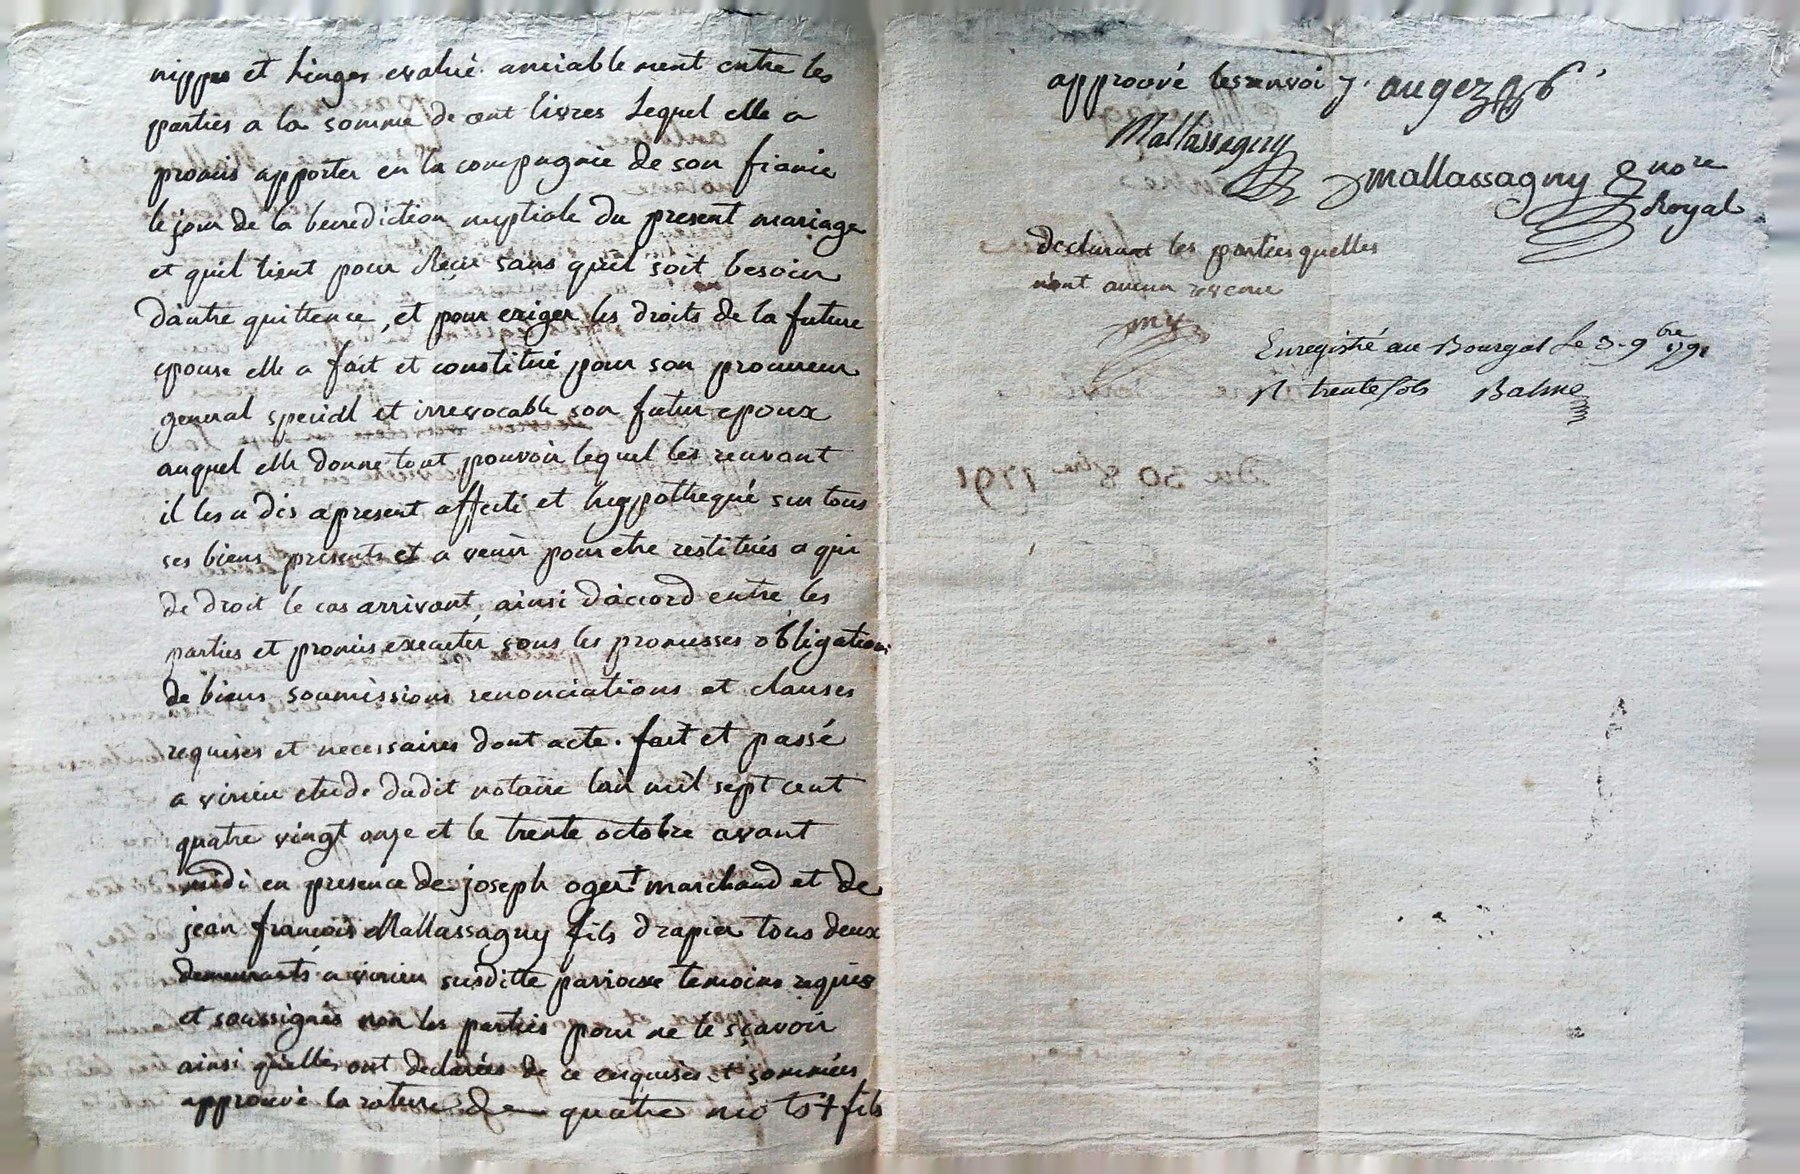 nippes et Linges evalué amiablement entre les
parties a la somme de cent livres Lequel elle a
promis apporter en la compagnie de son fiancé
le jour de la benediction nuptiale du present mariage
et quil tient pour Reçu sans quil soit besoin
dàutre quittence, et pour exiger les droits de la future
epouse elle a fait et constitué pour son procureur
general special et irrevocable son futur epoux
auquel elle donne tout pouvoir lequel les reuvant
il les a dis apresent affecté et hyppothequé sur tous
ses biens presents et a venir pour etre restitués a qui
de droit le cas arrivant, ainsi dàccord entre les
parties et promis executer sous les promesses obligations
de biens soumissions renonciations et clauses
requises et necessaires dont acte. fait et passé
a virieu etude dudit notaire làn mil sept cent
quatre vingt onze et le trente octobre avant
midi en presence de joseph oger + marchand et de
jean françois Mallassagny fils drapier tous deux
demeurants a virieu susditte parroisse temoins requis
et soussignés non les parties pour ne le sçavoir
ainsi quèlles ont declarées de ce enquises et sommées
approuvé la rature de quatre mots + fils
approuvé les renvoi J. auger
Mallassagny
Mallassagny nore
Royal
declarant les parties quelles
n'ont aucun revenu
my
Enregistré au Bourgal Le 3. 9bre 1791
R trente sols Balme
Du 30 8bre 1791